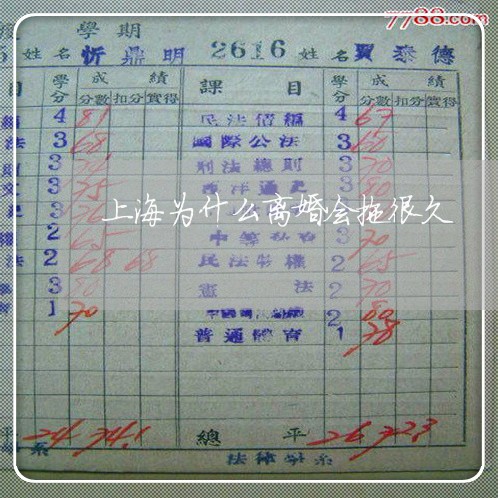 7788.com
學期
姓名 忻鼎明 2616 姓名 賈泰德
目 學分 成績 課目 學分 成績
分數 扣分 實得 分數 扣分 實得
4 81 民法債編 4 67
法 3 68 國際公法 3 60
3 刑法總則 3 70
3 75 西洋通史 3 80
上海为什么离婚会拖很久
2 65 3 70
法 2 68 68 民法物權 2 65
3 80 憲法 2 70
1 70 2 80
普通體育 1 78
24 74.1 總平 26 72.3
系 法律學系